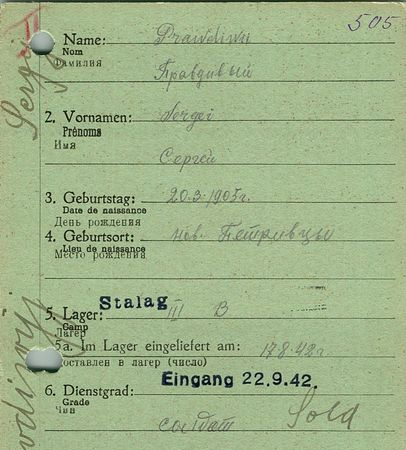 505
1. Name: Prawdiwy
Nom
Фамилия
Правдивый
2. Vornamen: Sergei
Prénoms
Имя
Сергей
3. Geburtstag: 20.3.1905г.
Date de naissance
День рождения
4. Geburtsort: нов. Петривцы
Lieu de naissance
Место рождения
Stalag
5. Lager: III B
Camp
Лагерь
5a. Im Lager eingeliefert am: 17.8.42г
доставлен в лагер (число)
Eingang 22.9.42.
6. Dienstgrad:
Grade
Чин
солдат Sold